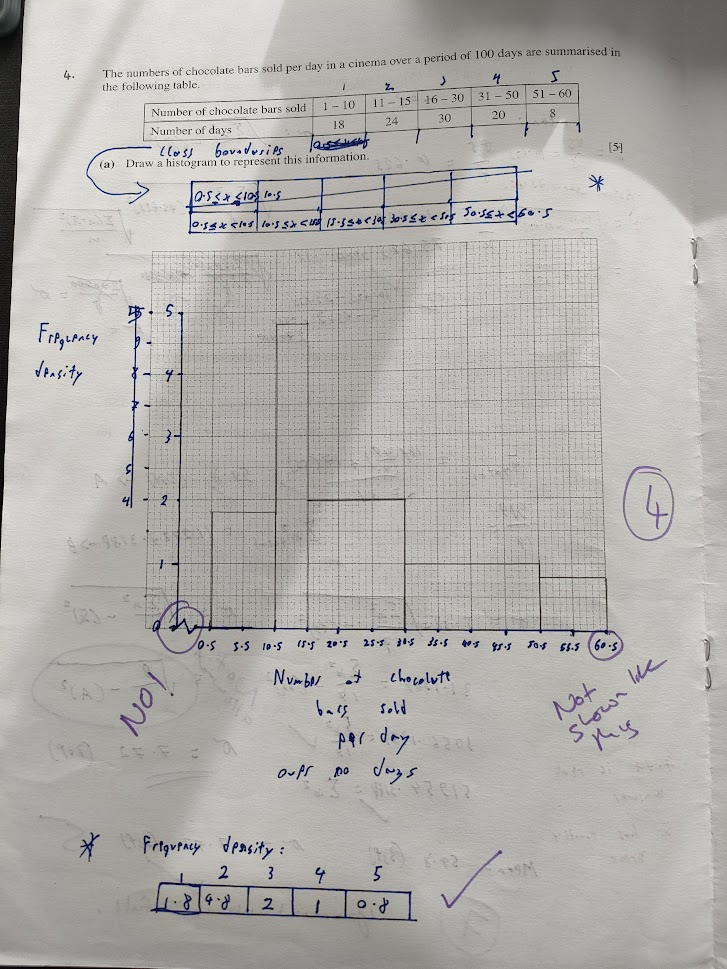 4. The numbers of chocolate bars sold per day in a cinema over a period of 100 days are summarised in
the following table.
1 2 3 4 5
Number of chocolate bars sold 1 – 10 11 – 15 16 – 30 31 – 50 51 – 60
Number of days 18 24 30 20 8
class boundaries
(a) Draw a histogram to represent this information. [5]
0.5≤x≤10.5 10.5
*
0.5≤x<10.5 10.5≤x<15.5 15.5≤x<30.5 30.5≤x<50.5 50.5≤x<60.5
5
Frequency
9
density
8 4
7
6 3
5
4 2
4
1
0
0.5 5.5 10.5 15.5 20.5 25.5 30.5 35.5 40.5 45.5 50.5 55.5 60.5
NO!
Number of chocolate
bars sold
per day
over no days
Not
shown like
this
* Frequency density:
1 2 3 4 5
1.8 4.8 2 1 0.8